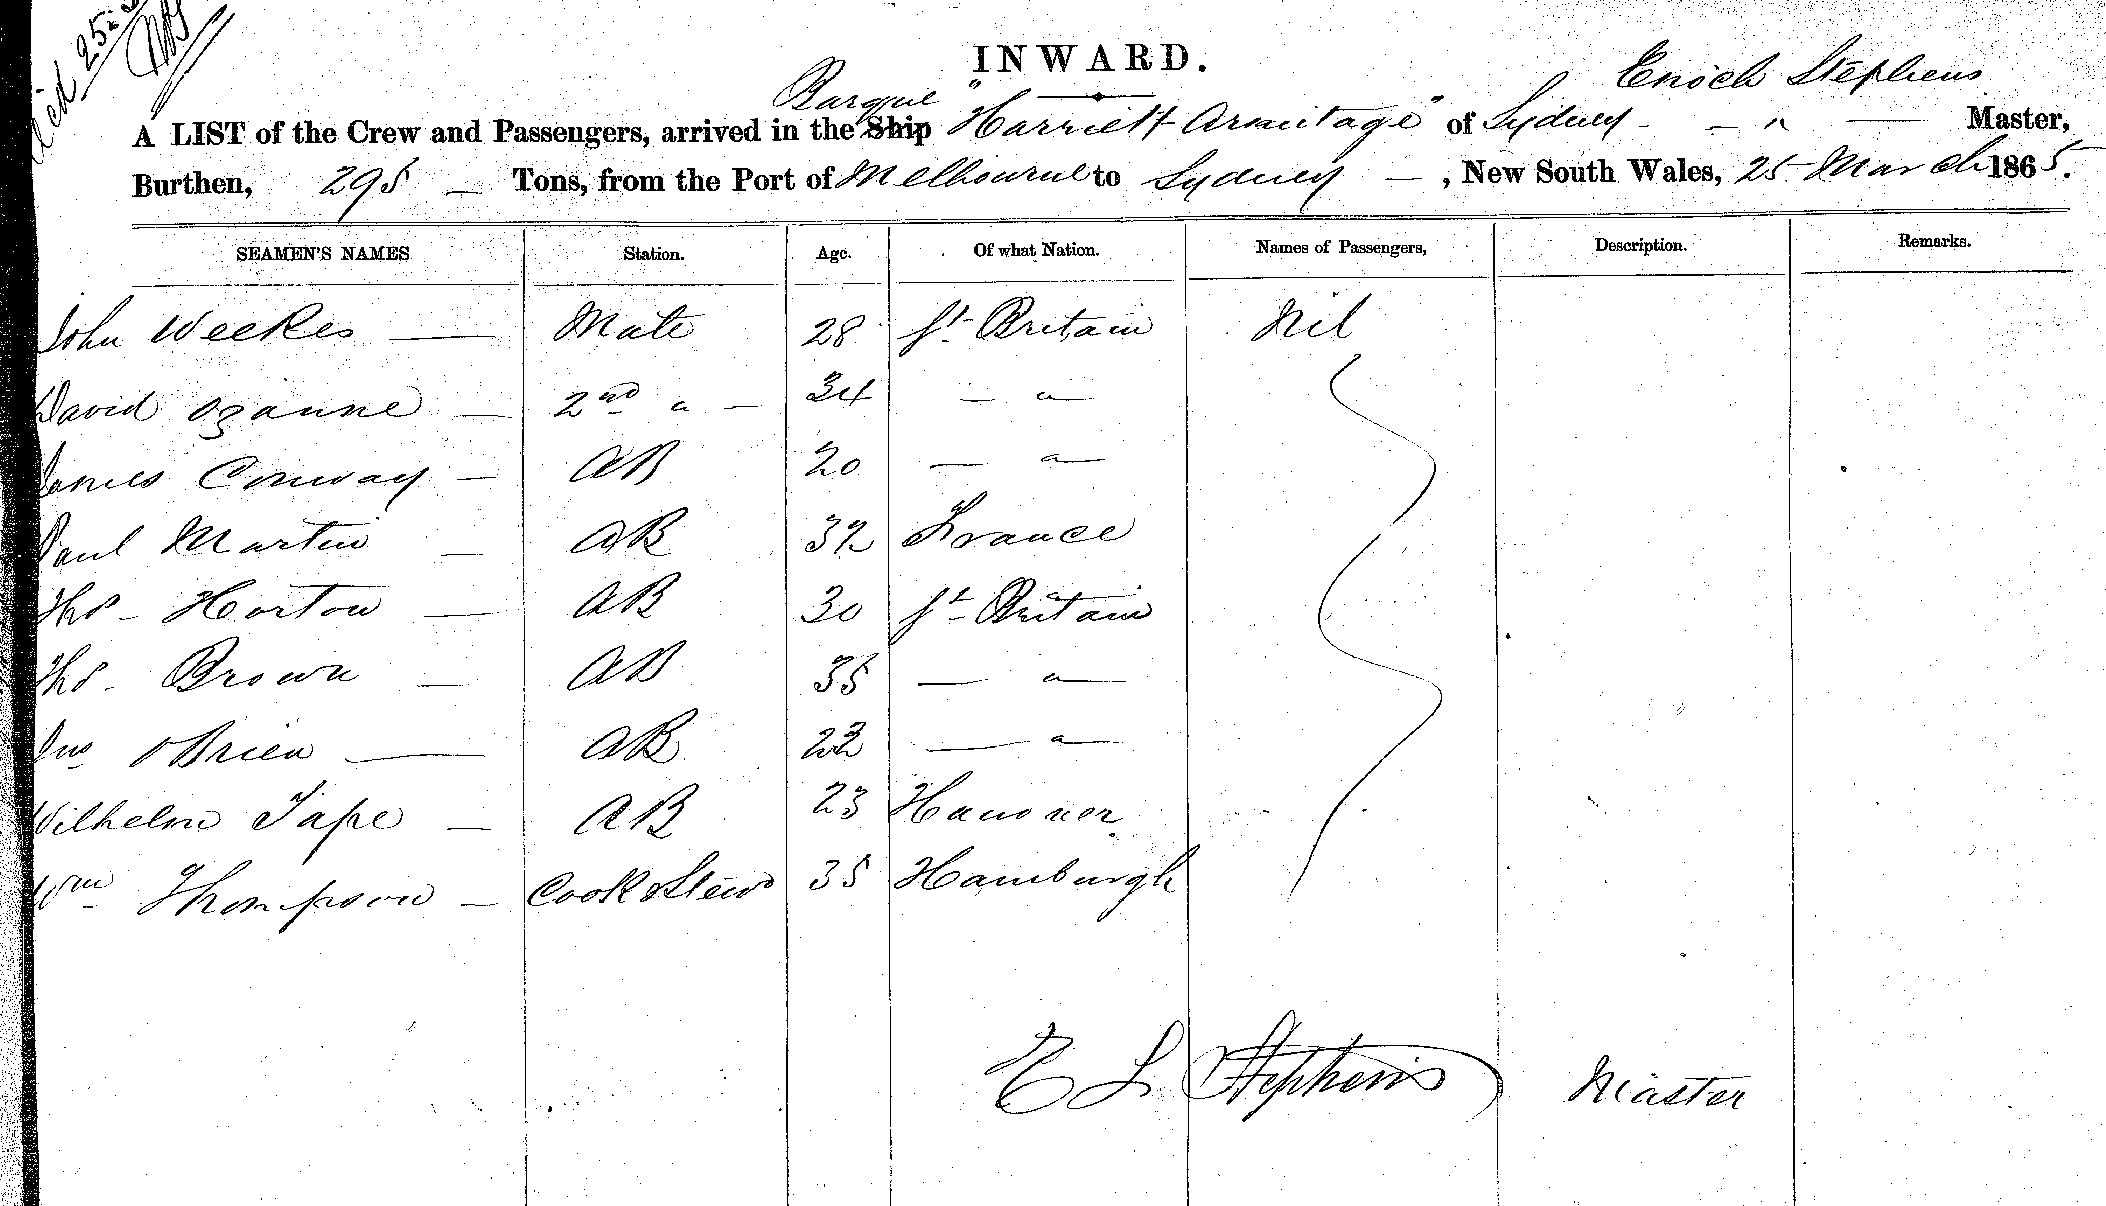 25
INWARD.
Enoch Stephens
Barque
A LIST of the Crew and Passengers, arrived in the Ship "Harriett Armitage" of Sydney - - " — Master,
Burthen, 295 — Tons, from the Port of Melbourne to Sydney — , New South Wales, 25 March 1865.
SEAMEN'S NAMES Station. Age. Of what Nation. Names of Passengers, Description. Remarks.
John Weekes — Mate 28 Gt Britain Nil
David Ozanne — 2nd " — 34 — "
James Conway — AB 20 — "
Paul Martin — AB 32 France
Thos - Horton — AB 30 Gt Britain
Thos - Brown — AB 35 — "
Jno OBrien — AB 22 — "
Wilhelm Tape — AB 23 Hanover
Wm Thompson — Cook & Stewd 35 Hamburgh
E L Stephens Master